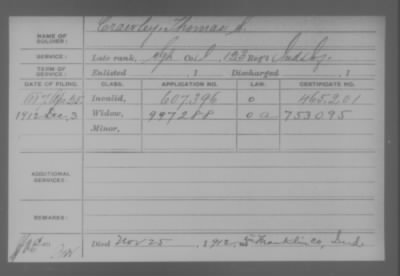 NAME OF SOLDIER: Crawley, Thomas
SERVICE: Late rank, Co. I, 123 Reg't Ind. Inf.
TERM OF SERVICE: Enlisted , 1 Discharged , 1
DATE OF FILING. CLASS. APPLICATION NO. LAW. CERTIFICATE NO.
Invalid, 607,396 465,201
1912 Dec. 3 Widow, 997288 753095
Minor,
ADDITIONAL SERVICES:
REMARKS:
Died Nov 25, 1912, Franklin Co, Ind.